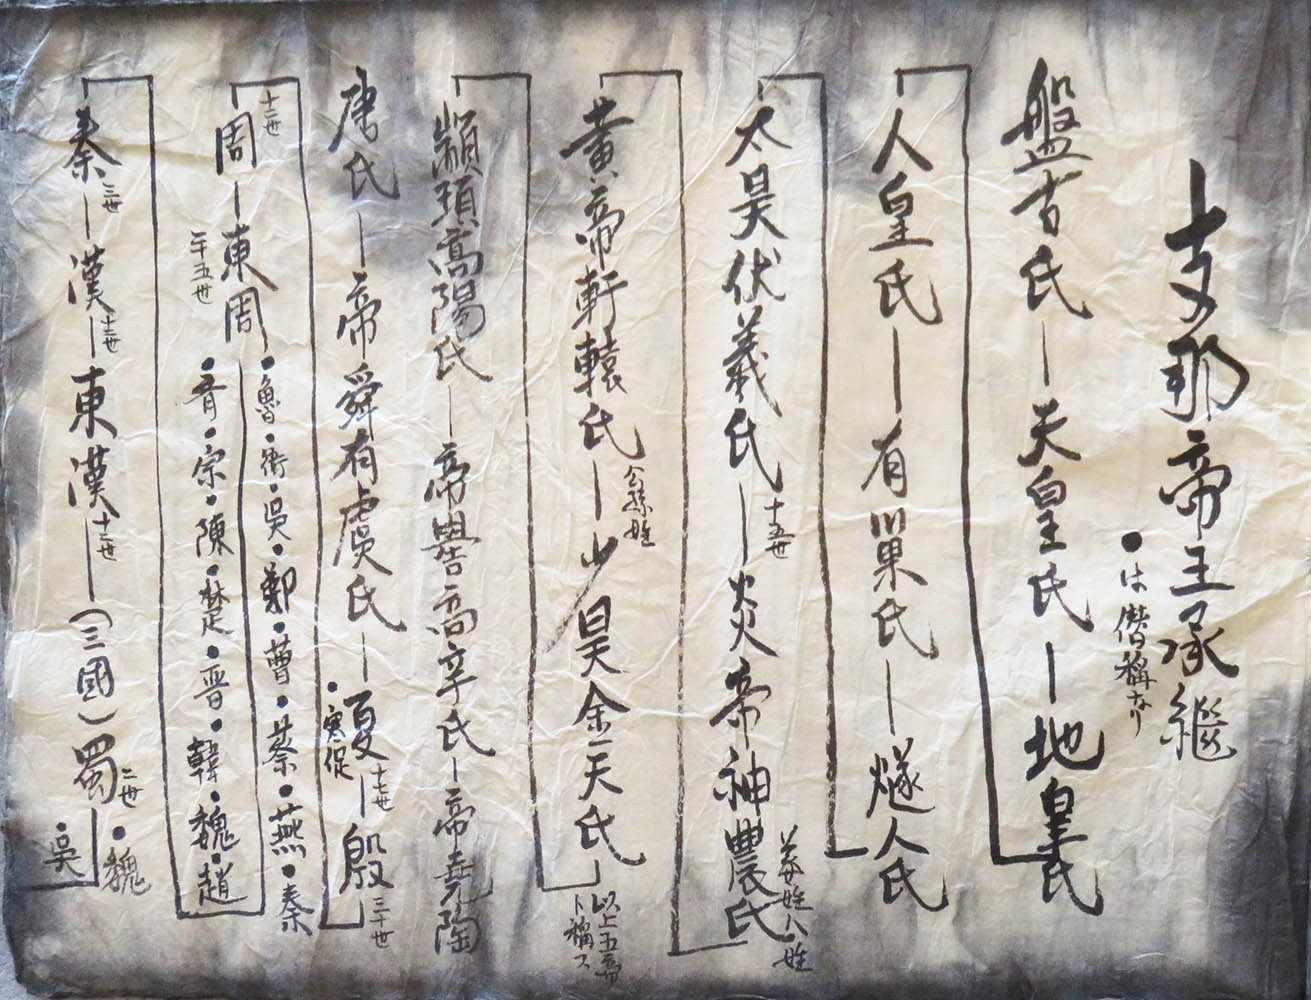 支那帝王承繼
●は僭稱なり
盤古氏－天皇氏－地皇氏
人皇氏－有巣氏－燧人氏
太昊伏羲氏十五世－炎帝神農氏姜姓八姓
黄帝軒轅氏公孫姓－少昊金天氏以上五帝ト稱ス
顓頊高陽氏－帝嚳高辛氏－帝堯陶
唐氏－帝舜有虞氏－夏十七世●寒促－殷三十世
周十二世－東周二十五世
●魯●衛●吳●鄭●曹●蔡●燕●秦
●齊●宗●陳●楚●晋●韓●魏●趙
秦三世－漢十二世－東漢十二世－(三國)蜀二世●魏●吳